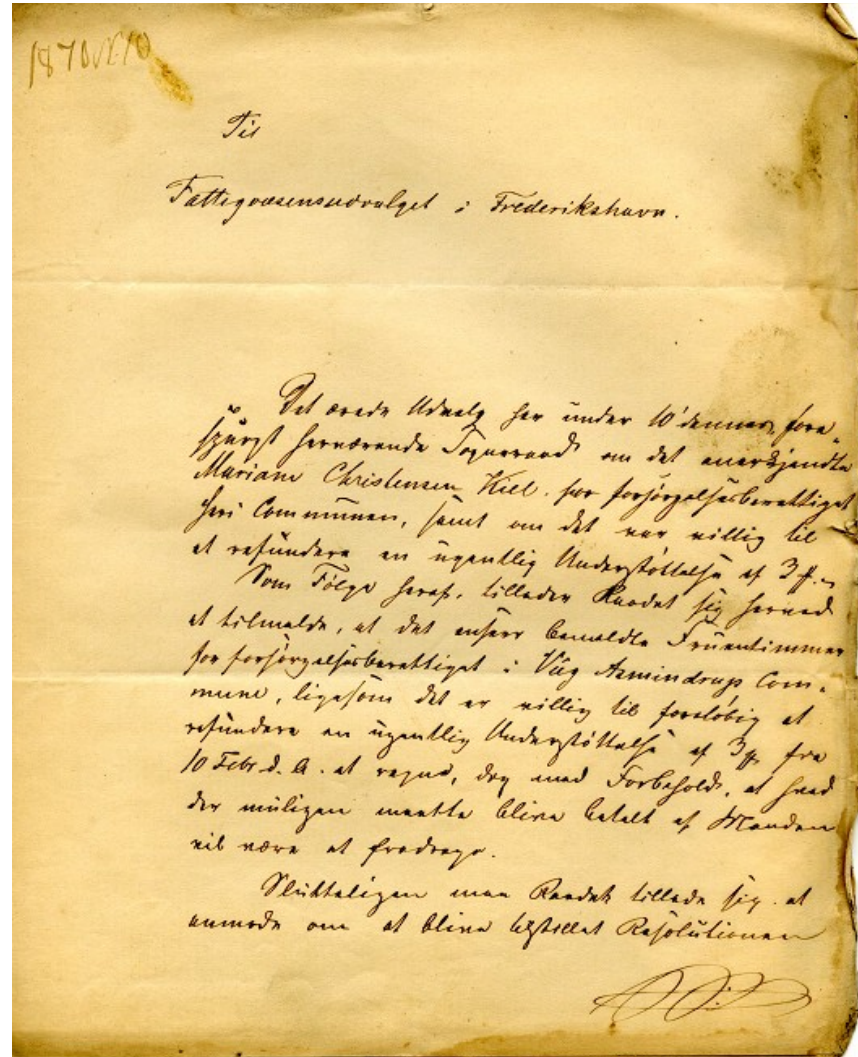 1870
Til
Fattigvæsensudvalget i Frederikshavn.
Det ærede Udvalg har under 10' dennes, fore-
spurgt herværende Sogneraad om det anerkjendte
Mariane Christensen Kiel. for forsørgelsesberettiget
heri Communen, samt om det var villig til
at refundere en ugentlig Understøttelse af 3
Som Følge heraf, tillader Raadet sig herved
at tilmelde, at det anseer bemeldte Fruentimmer
for forsørgelsesberettiget i Vig Asmindrup Com-
mune, ligesom det er villig til foreløbig at
refundere en ugentlig Understøttelse af 3 fra
10 Febr. d. A. at regne, dog med Forbehold, at hvad
der muligen maatte blive betalt af Manden
vil være at fradrage.
Slutteligen maa Raadet tillade sig at
anmode om at blive tilstillet Resolutionen